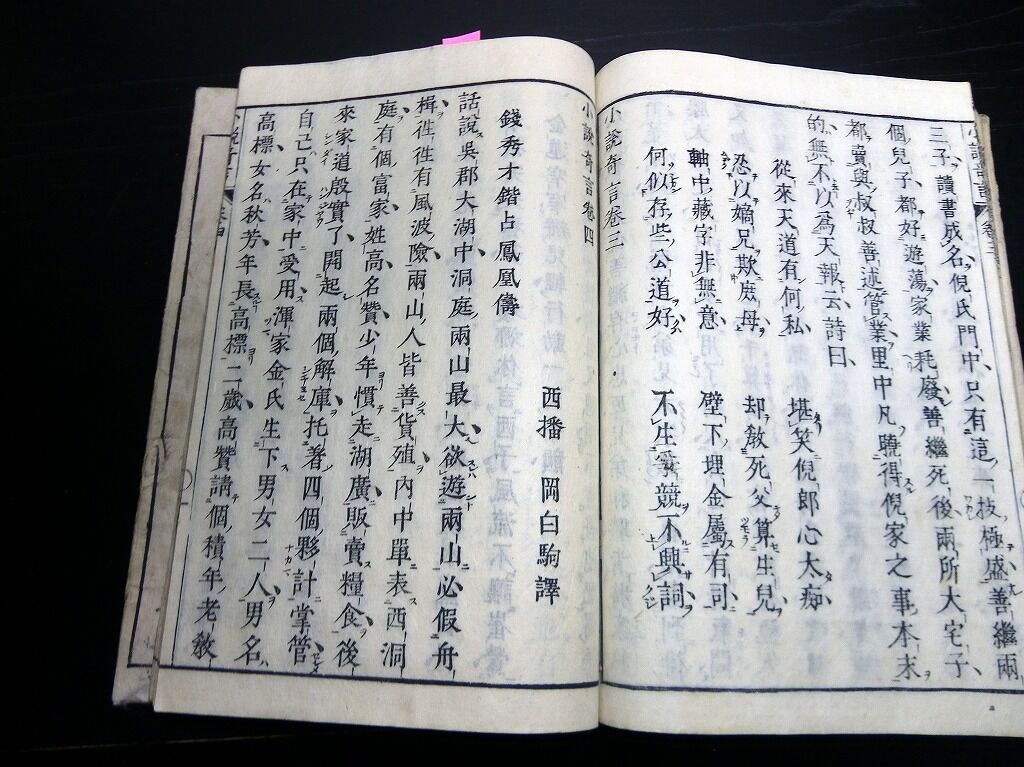 三子讀書成名倪氏門中只有這一技極盛善繼兩
個兒子都好遊蕩家業耗廢善繼死後兩所大宅子
都賣與叔叔善述管業里中凡曉得倪家之事本末
的無不以為天報云詩曰
從來天道有何私 堪笑倪郎心太痴
忍以嫡兄欺庶母 却敎死父算生兒
軸中藏字非無意 壁下埋金屬有司
何似存些公道好 不生爭競不興詞
小說奇言卷三
小說奇言卷四
西播岡白駒譯
錢秀才錯占鳳凰儔
話說吳郡大湖中洞庭兩山最大欲遊兩山必假舟
楫徃徃有風波險兩山人皆善貨殖內中單表西洞
庭有個富家姓高名贊少年慣走湖廣販賣糧食後
來家道殷實了開起兩個解庫托著四個夥計掌管
自己只在家中受用渾家金氏生下男女二人男名
高標女名秋芳年長高標二歲高贊請個積年老敎